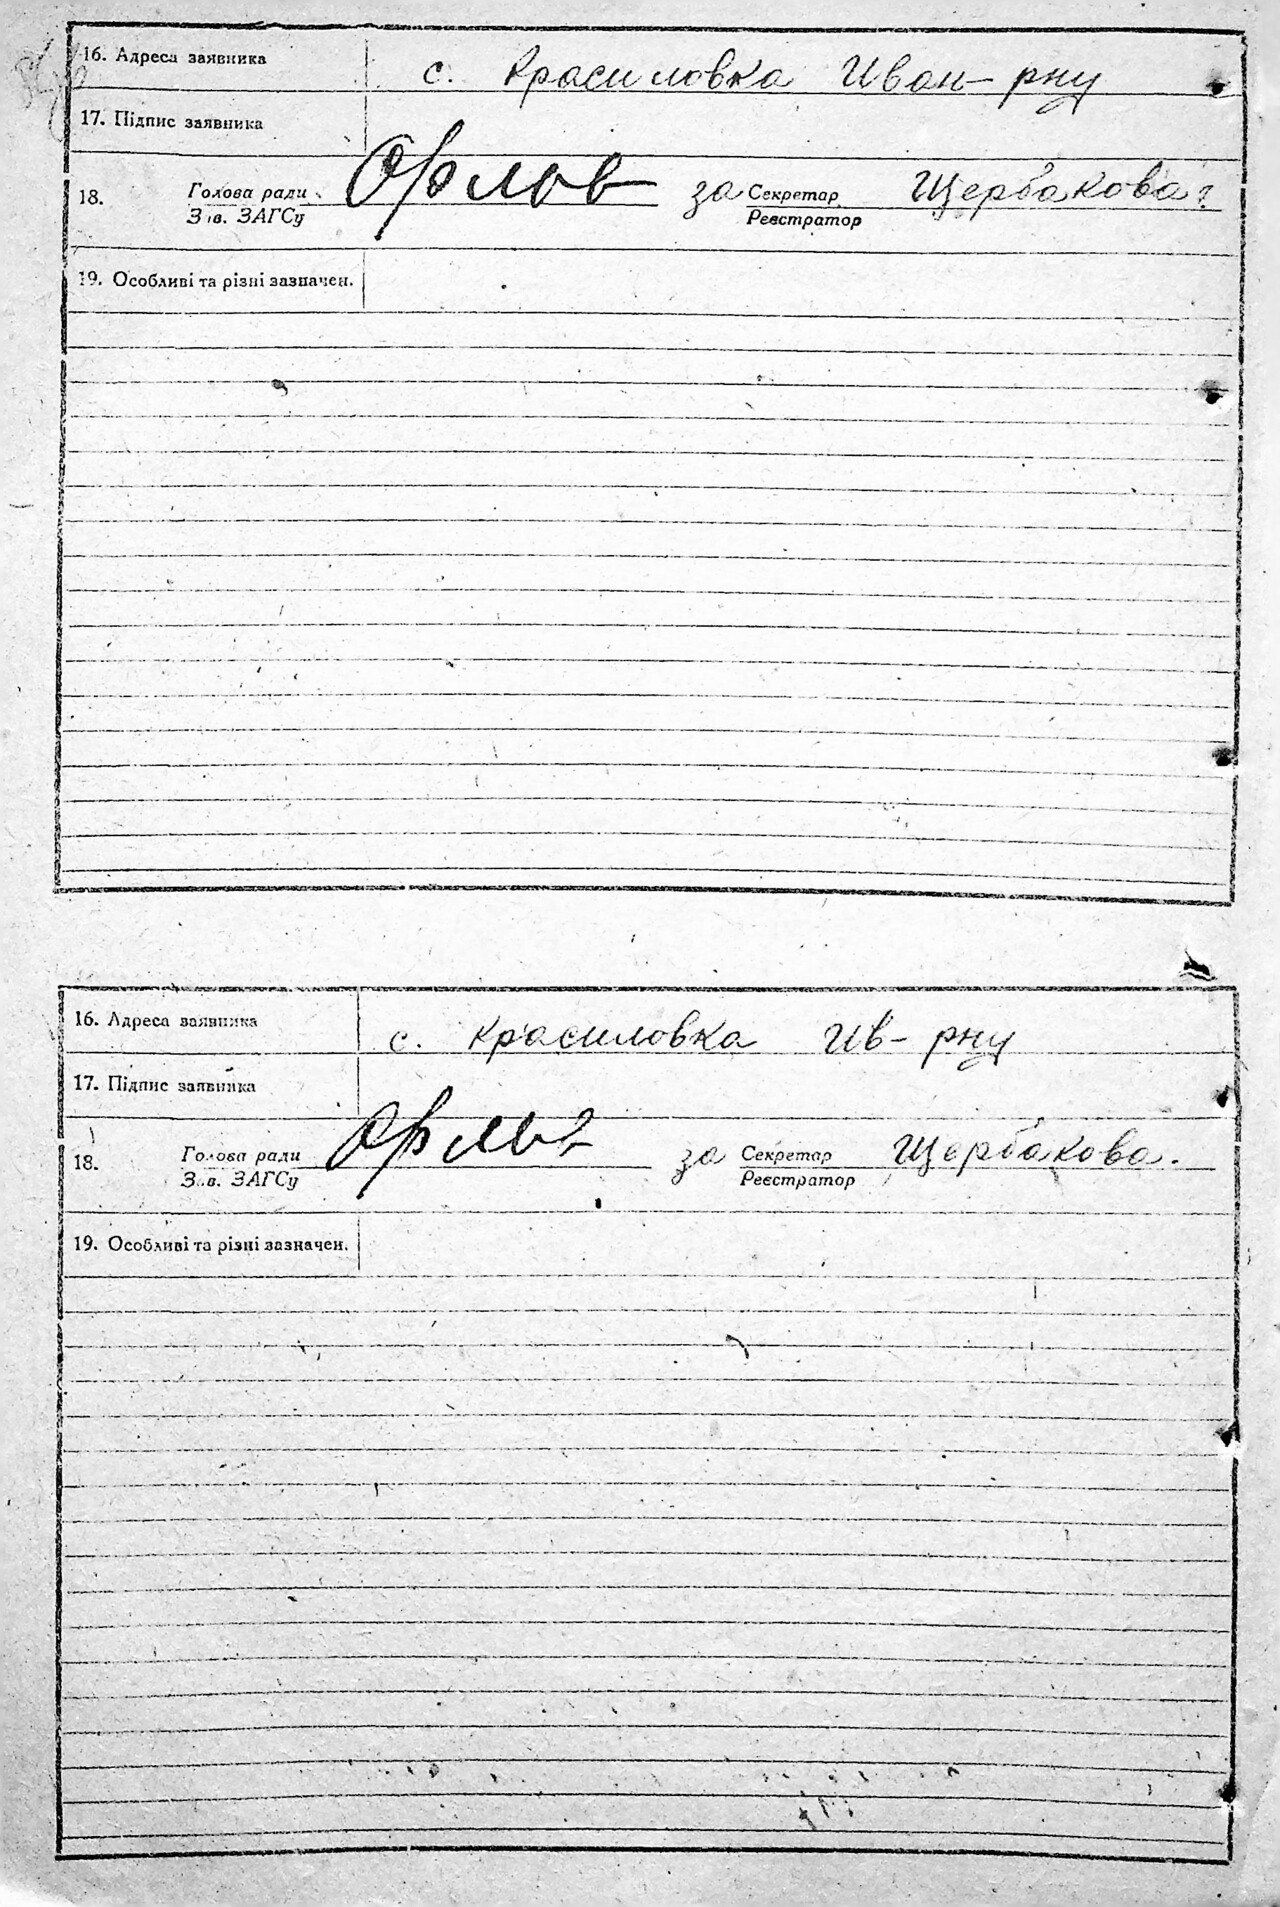 16. Адреса заявника с. Красиловка Иван-рну
17. Підпис заявника
18. Голова ради Орлов за Секретар Щербакова
Зав. ЗАГСу Реєстратор
19. Особливі та різні зазначен.
16. Адреса заявника с. Красиловка Ив-рну
17. Підпис заявника
18. Голова ради Орлов за Секретар Щербакова.
Зав. ЗАГСу Реєстратор
19. Особливі та різні зазначен.